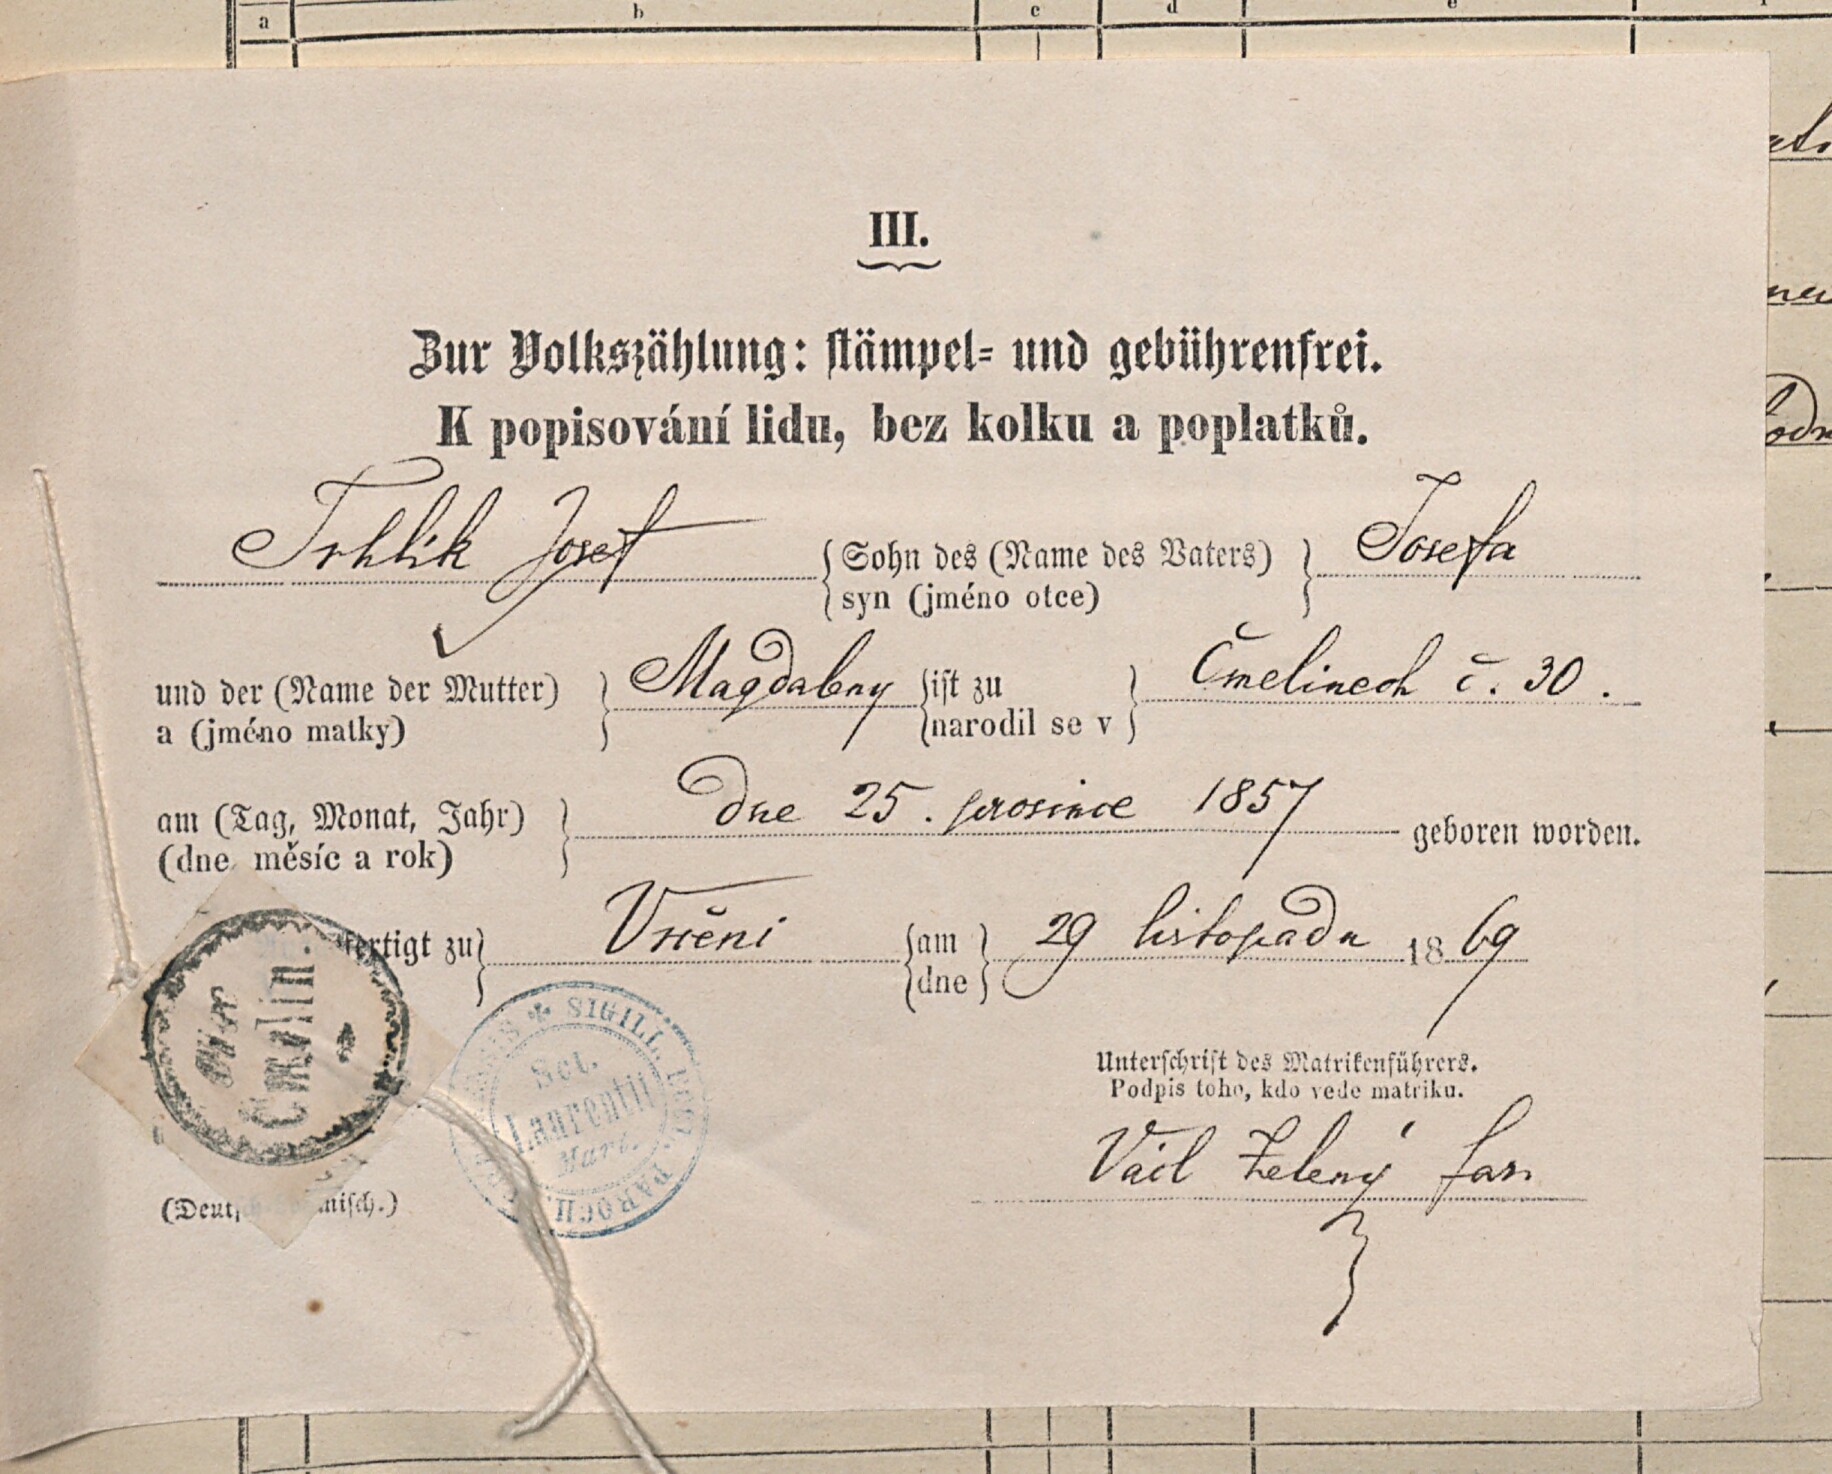 a b c d e
III.
Zur Volkszählung: stämpel- und gebührenfrei.
K popisování lidu, bez kolku a poplatků.
Trhlík Josef { Sohn des (Name des Vaters) } Josefa
syn (jméno otce)
und der (Name der Mutter) } Magdaleny { ist zu } Čmelinech č. 30.
a (jméno matky) narodil se v
am (Tag, Monat, Jahr) } dne 25. prosince 1857 geboren worden.
(dne měsíc a rok)
fertigt zu } Vrčeni { am } 29 listopadu 1869
dne
Čmelin.
SIGILL. PAROCH.
Sct.
Laurentii
Mart.
Unterschrift des Matrikenführers.
Podpis toho, kdo vede matriku.
Václ Zelený far.
(Deutsch-böhmisch.)